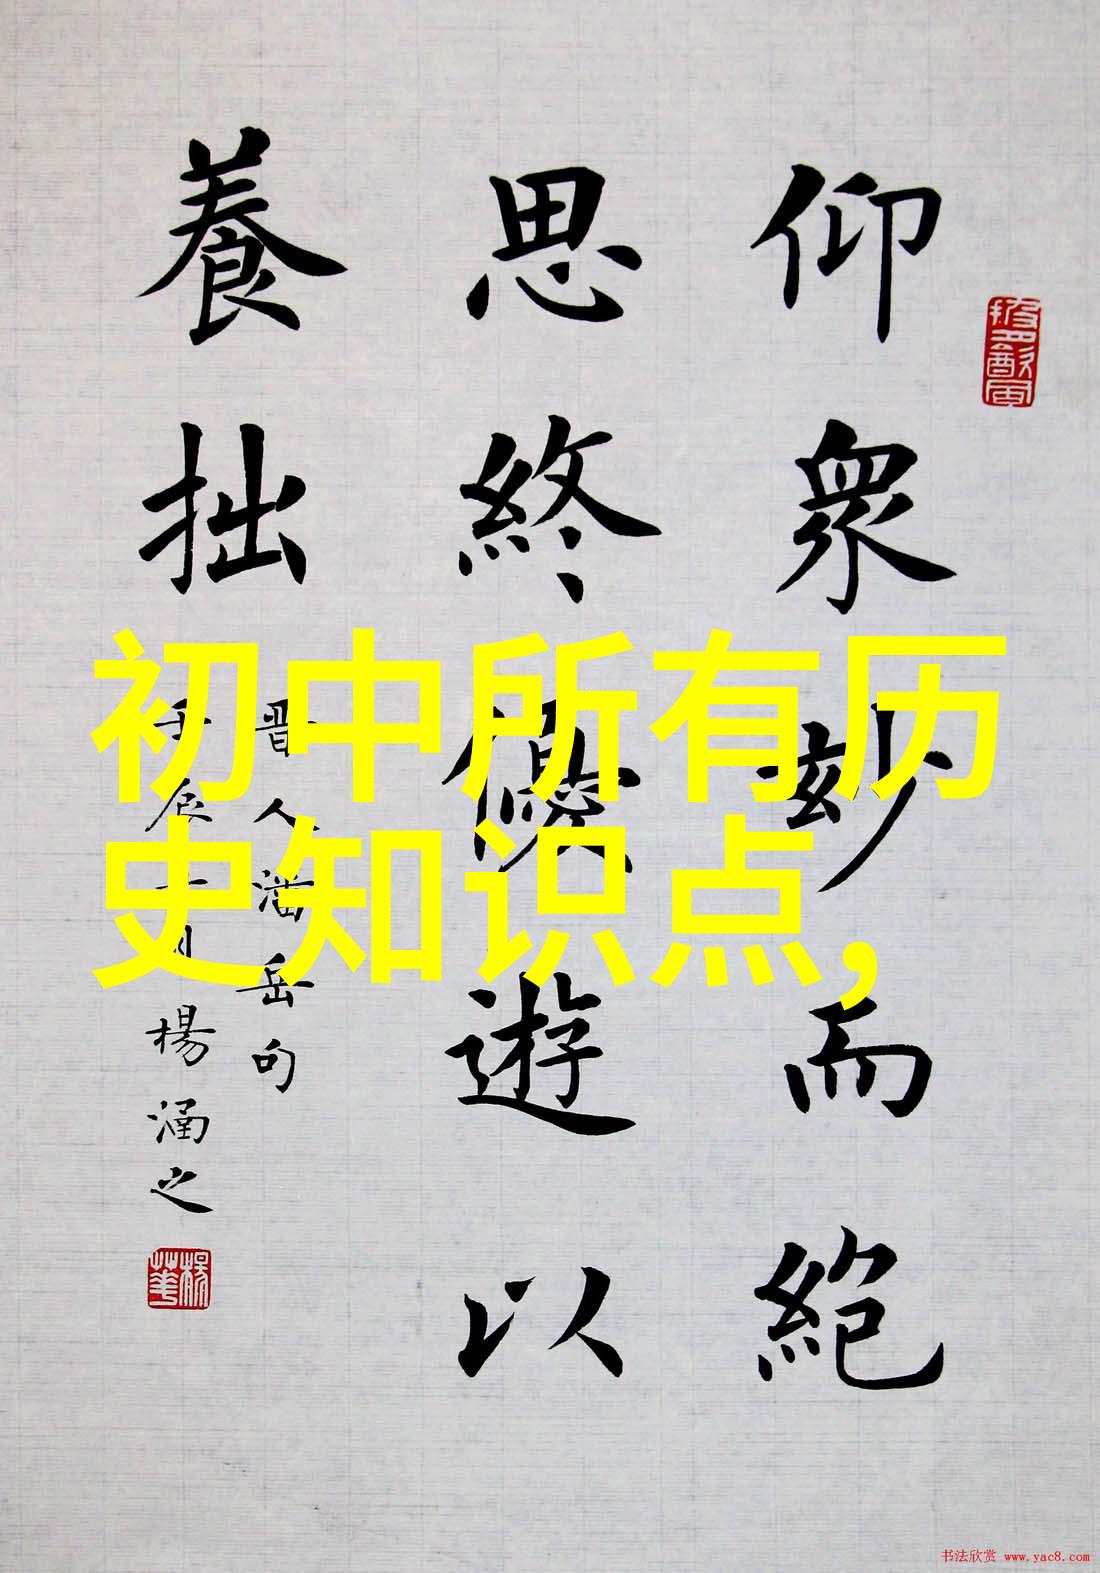 仰衆妙而絶
思終優遊以
養拙
晋人潘岳句
楊涵之
初中所有历
史知识点,
书法欣赏 www.yac8.com